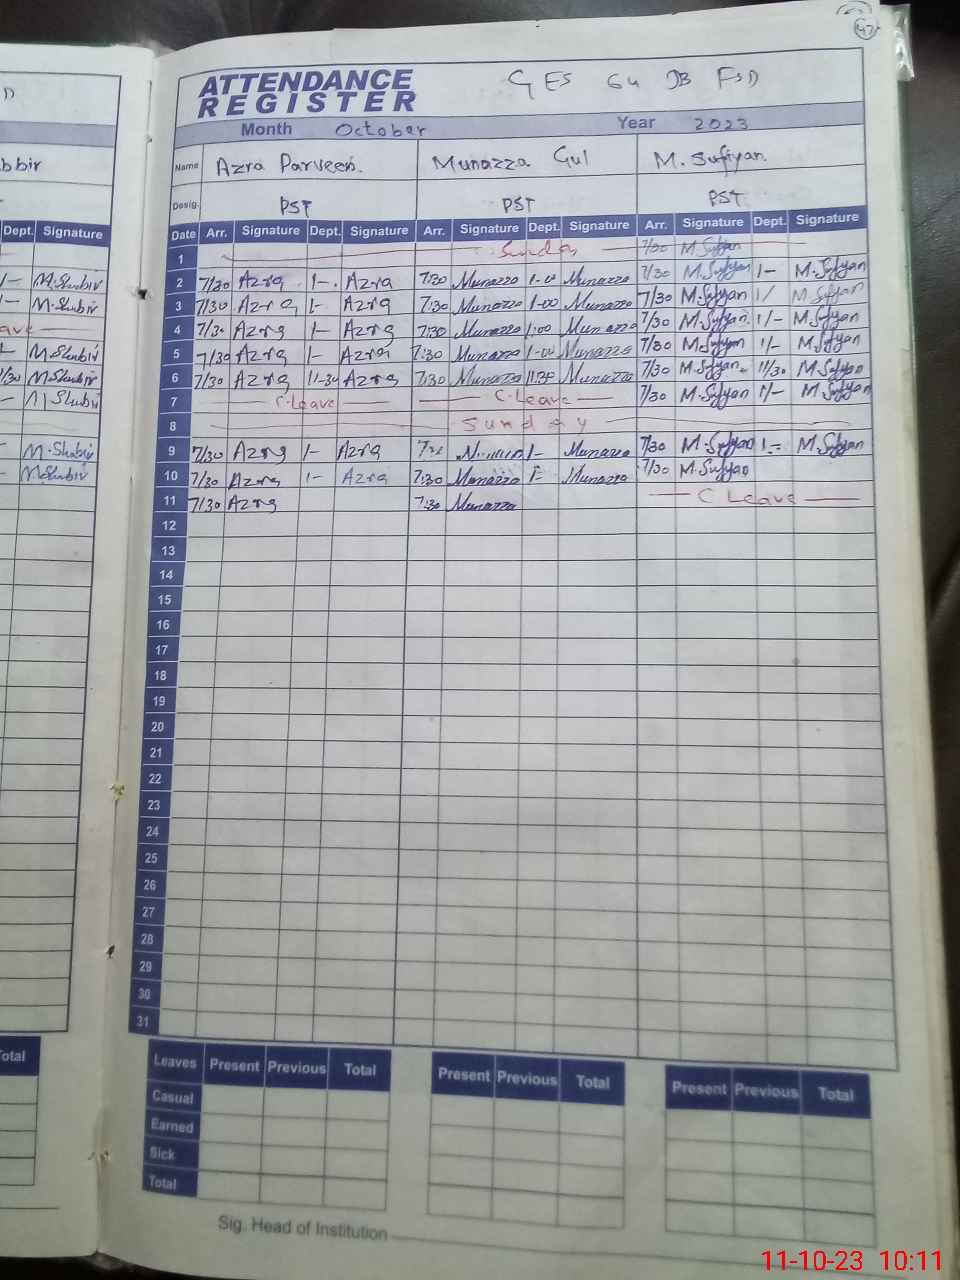 47
ATTENDANCE
REGISTER
GES 64 JB FSD
Month October Year 2023
Name Azra Parveen. Munazza Gul M. Sufiyan.
Desig. PST PST PST
Dept. Signature Date Arr. Signature Dept. Signature Arr. Signature Dept. Signature Arr. Signature Dept. Signature
1 Sunday 7/30 M.Sufyan
1- M.Shabir 2 7/30 Azra 1- Azra 7:30 Munazza 1-00 Munazza 7/30 M.Sufyan 1- M.Sufyan
1- M.Shabir 3 7/30 Azra 1- Azra 7:30 Munazza 1-00 Munazza 7/30 M.Sufyan 1/ M.Sufyan
4 7/30 Azra 1- Azra 7:30 Munazza 1:00 Munazza 7/30 M.Sufyan 1/- M.Sufyan
M.Shabir 5 7/30 Azra 1- Azra 7:30 Munazza 1-00 Munazza 7/30 M.Sufyan 1/- M.Sufyan
M.Shabir 6 7/30 Azra 11-30 Azra 7:30 Munazza 11:30 Munazza 7/30 M.Sufyan 11/30 M.Sufyan
M Shabir 7 C.Leave C.Leave 7/30 M.Sufyan 1/- M.Sufyan
8 Sunday
M.Shabir 9 7/30 Azra 1- Azra 1- Munazza 7/30 M.Sufyan 1- M.Sufyan
M.Shabir 10 7/30 Azra 1- Azra 7:30 Munazza Munazza 7/30 M.Sufyan
11 7/30 Azra 7:30 Munazza C Leave
12
13
14
15
16
17
18
19
20
21
22
23
24
25
26
27
28
29
30
31
Leaves Present Previous Total Present Previous Total Present Previous Total
Casual
Earned
Sick
Total
Sig. Head of Institution
11-10-23 10:11